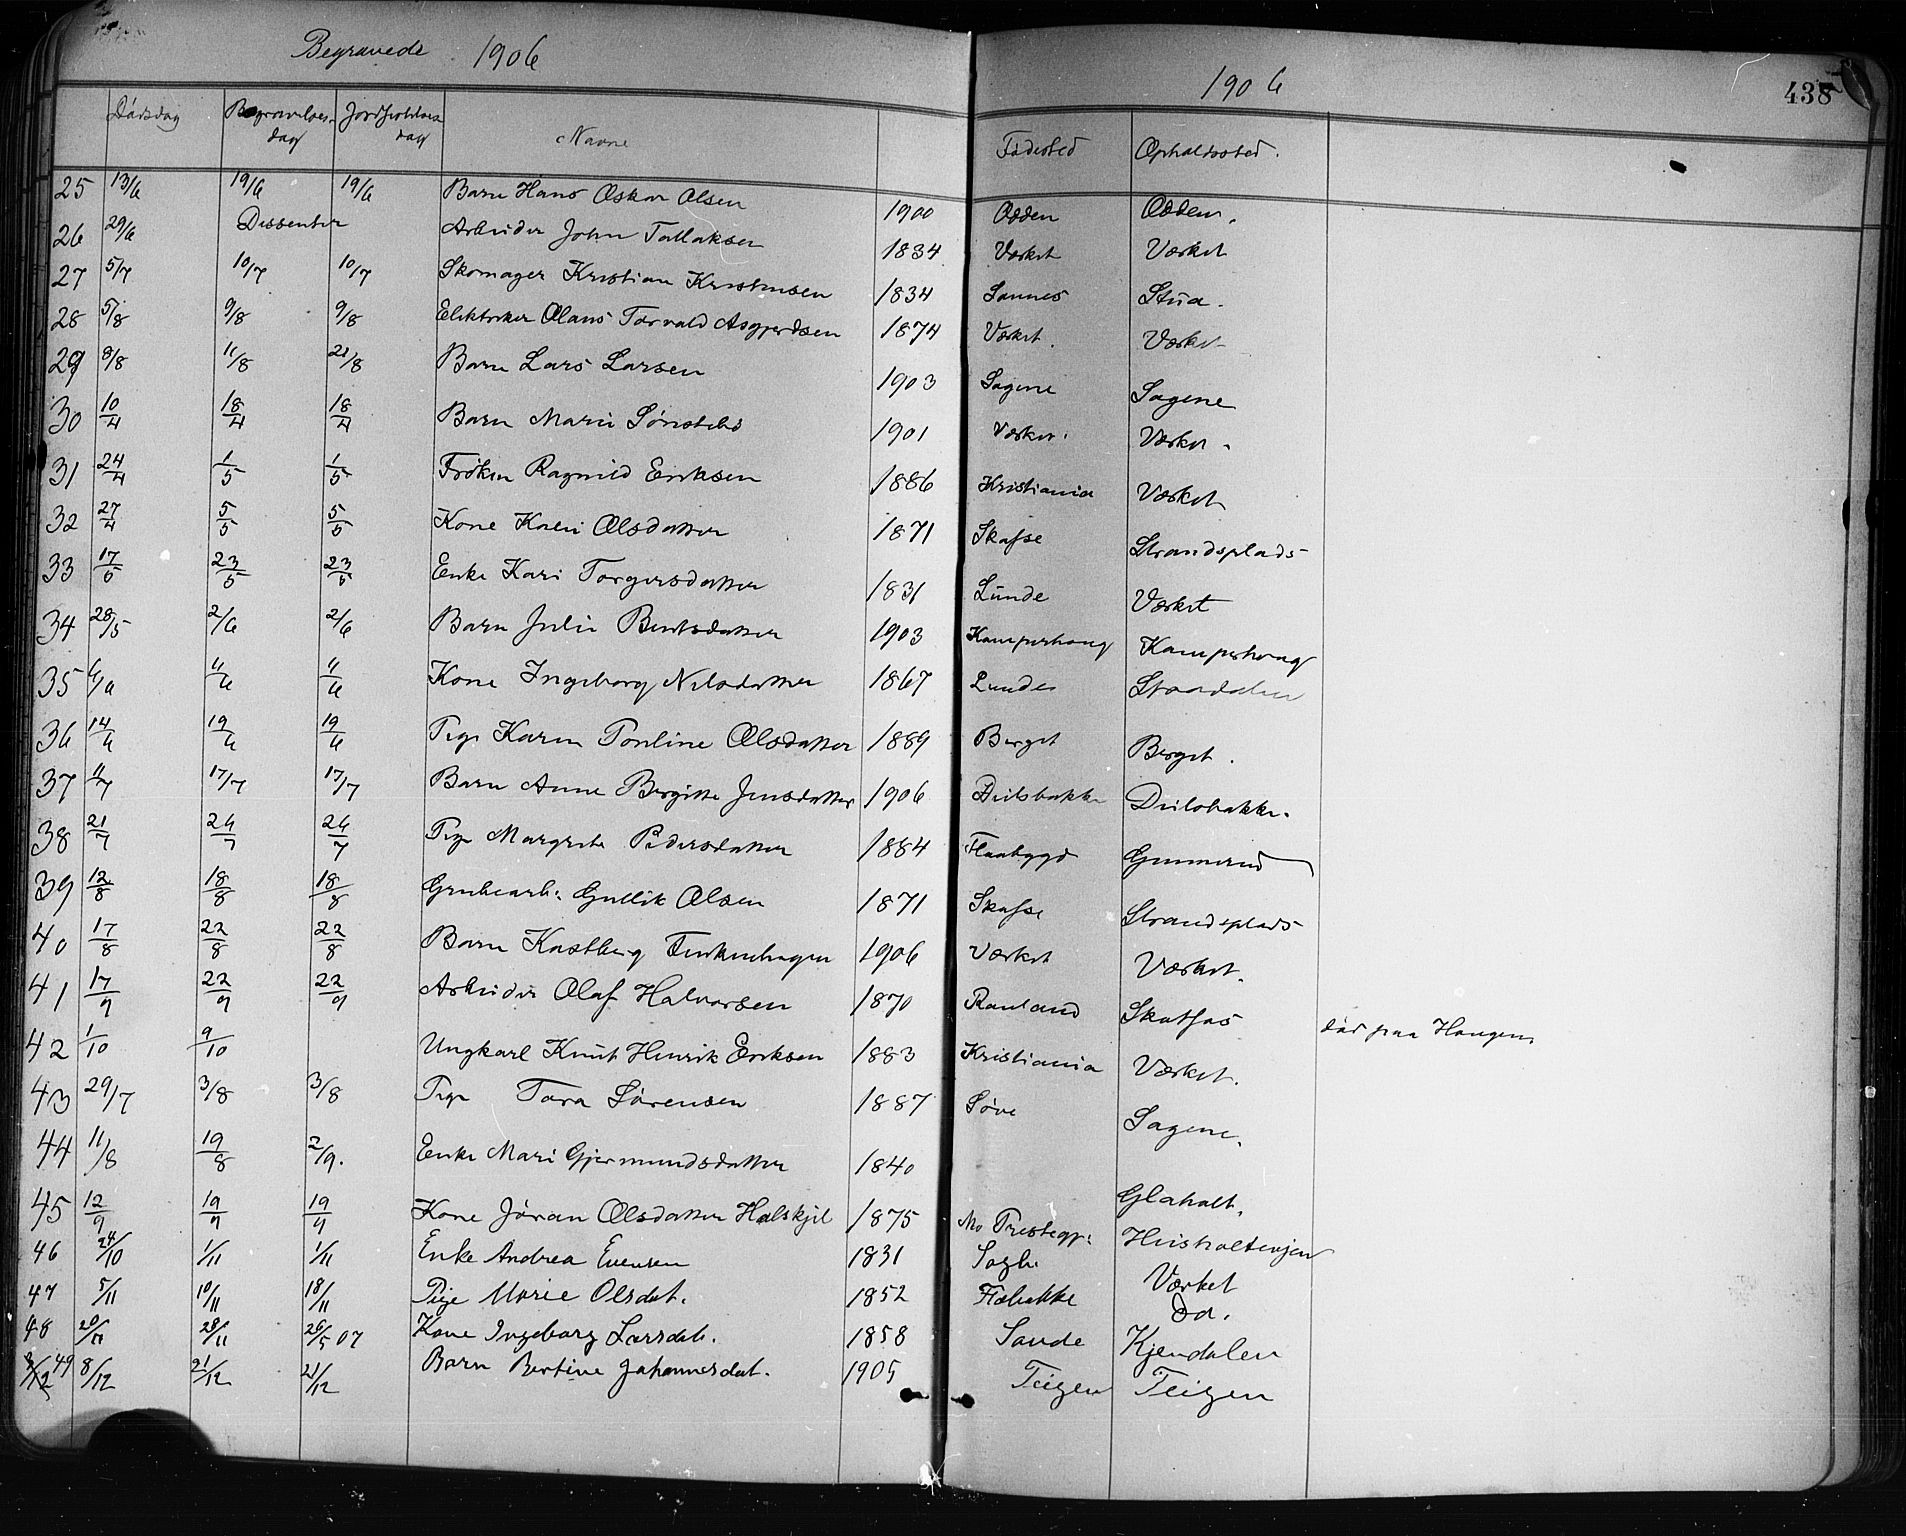 Begravede 1906
1906
438
Dødsdag Begravelses- dag Jordfæstelses dag Navne Fødested Opholdssted.
25 13/6 19/6 19/6 Barn Hans Oskar Olsen 1900 Odden Odden.
26 29/6 Dissenter Arbeider John Tallaksen 1834 Værket Værket
27 5/7 10/7 10/7 Skomager Kristian Kristensen 1834 Sannes Stua.
28 5/8 9/8 9/8 Elektriker Olaus Torvald Asgjerdsen 1874 Værket. Værket
29 8/8 11/8 21/8 Barn Lars Larsen 1903 Sagene Sagene
30 10/4 18/4 18/4 Barn Marie 1901 Værket. Værket.
31 24/4 1/5 1/5 Frøken Ragnild Eriksen 1886 Kristiania Værket
32 27/4 5/5 5/5 Kone Kari Olsdatter 1871 Skafse Strandsplads
33 17/5 23/5 23/5 Enke Kari Torgersdatter 1831 Lunde Værket
34 28/5 2/6 2/6 Barn Julie Berntsdatter 1903 Kamperhaug Kamperhaug
35 11/6 11/6 Kone Ingeborg Nilsdatter 1867 Lunde
36 14/6 19/6 19/6 Pige Karen Pouline Olsdatter 1889 Berget Berget.
37 11/7 17/7 17/7 Barn Anne Bergitte Jensdatter 1906 Deilsbakke Deilsbakke.
38 21/7 26/7 26/7 Pige Margrete Pedersdatter 1884 Flaabygd
39 12/8 18/8 18/8 Grubearb: Gullik Olsen 1871 Skafse Strandsplads
40 17/8 22/8 22/8 Barn Kastberg 1906 Værket Værket.
41 17/9 22/9 22/9 Arbeider Olaf Halvorsen 1870 Rauland Skatfos død paa Haugen.
42 1/10 9/10 Ungkarl Knut Henrik Eriksen 1883 Kristiania Værket.
43 29/7 3/8 3/8 Pige Tora Sørensen 1887 Søve Sagene.
44 11/8 19/8 2/9. Enke Mari Gjermundsdatter 1840 Glaholt.
45 12/9 19/9 19/9 Kone Jøran Olsdatter Halskjil 1875 Mo Prestegj: Husholteigjen
46 24/10 1/11 1/11 Enke Andrea Evensen 1831 Værket
47 5/11 10/11 18/11 Pige Marie Olsdat. 1852 Fæbakke Do.
48 20/11 28/11 26/5 07 Kone Ingeborg Larsdat. 1858 Sande Kjendalen
49 8/12 21/12 21/12 Barn Bertine Johannesdat. 1905 Teigen Teigen